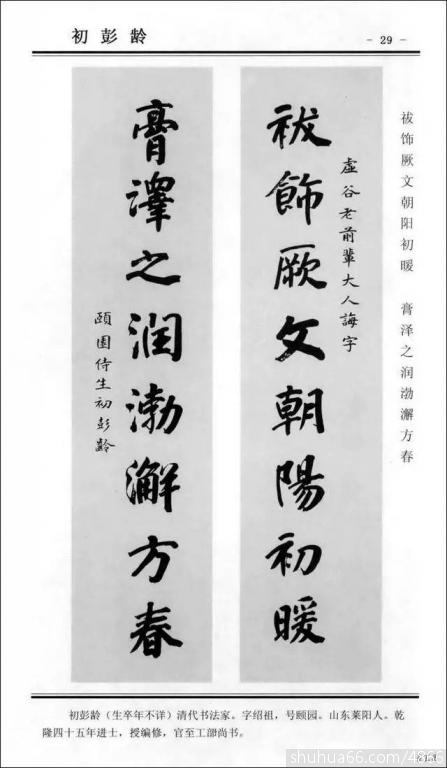 初彭龄
- 29 -
祓饰厥文朝阳初暖 膏泽之润渤澥方春
虚谷老前辈大人誨字
祓飾厥文朝陽初暖
膏澤之润渤澥方春
頤園侍生初彭齡
初彭龄（生卒年不详）清代书法家。字绍祖，号颐园。山东莱阳人。乾
隆四十五年进士，授编修，官至工部尚书。
shuhua66.com/486